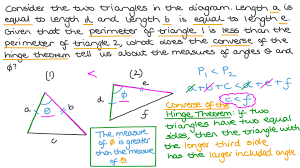 Consider the two triangles in the diagram. Length a is
equal to length d and length b is equal to length e.
Given that the perimeter of triangle 1 is less than the
perimeter of triangle 2, what does the converse of the
hinge theorem tell us about the measures of angles θ and
ϕ?
(1) < (2)
P₁ < P₂
a + b + c < d + e + f
c < f
a
θ
b
c
d
ϕ
e
f
The measure
of ϕ is greater
than the measure
of θ
Converse of the
Hinge Theorem: If two
triangles have two equal
sides, then the triangle with
the longer third side
has the larger included angle.